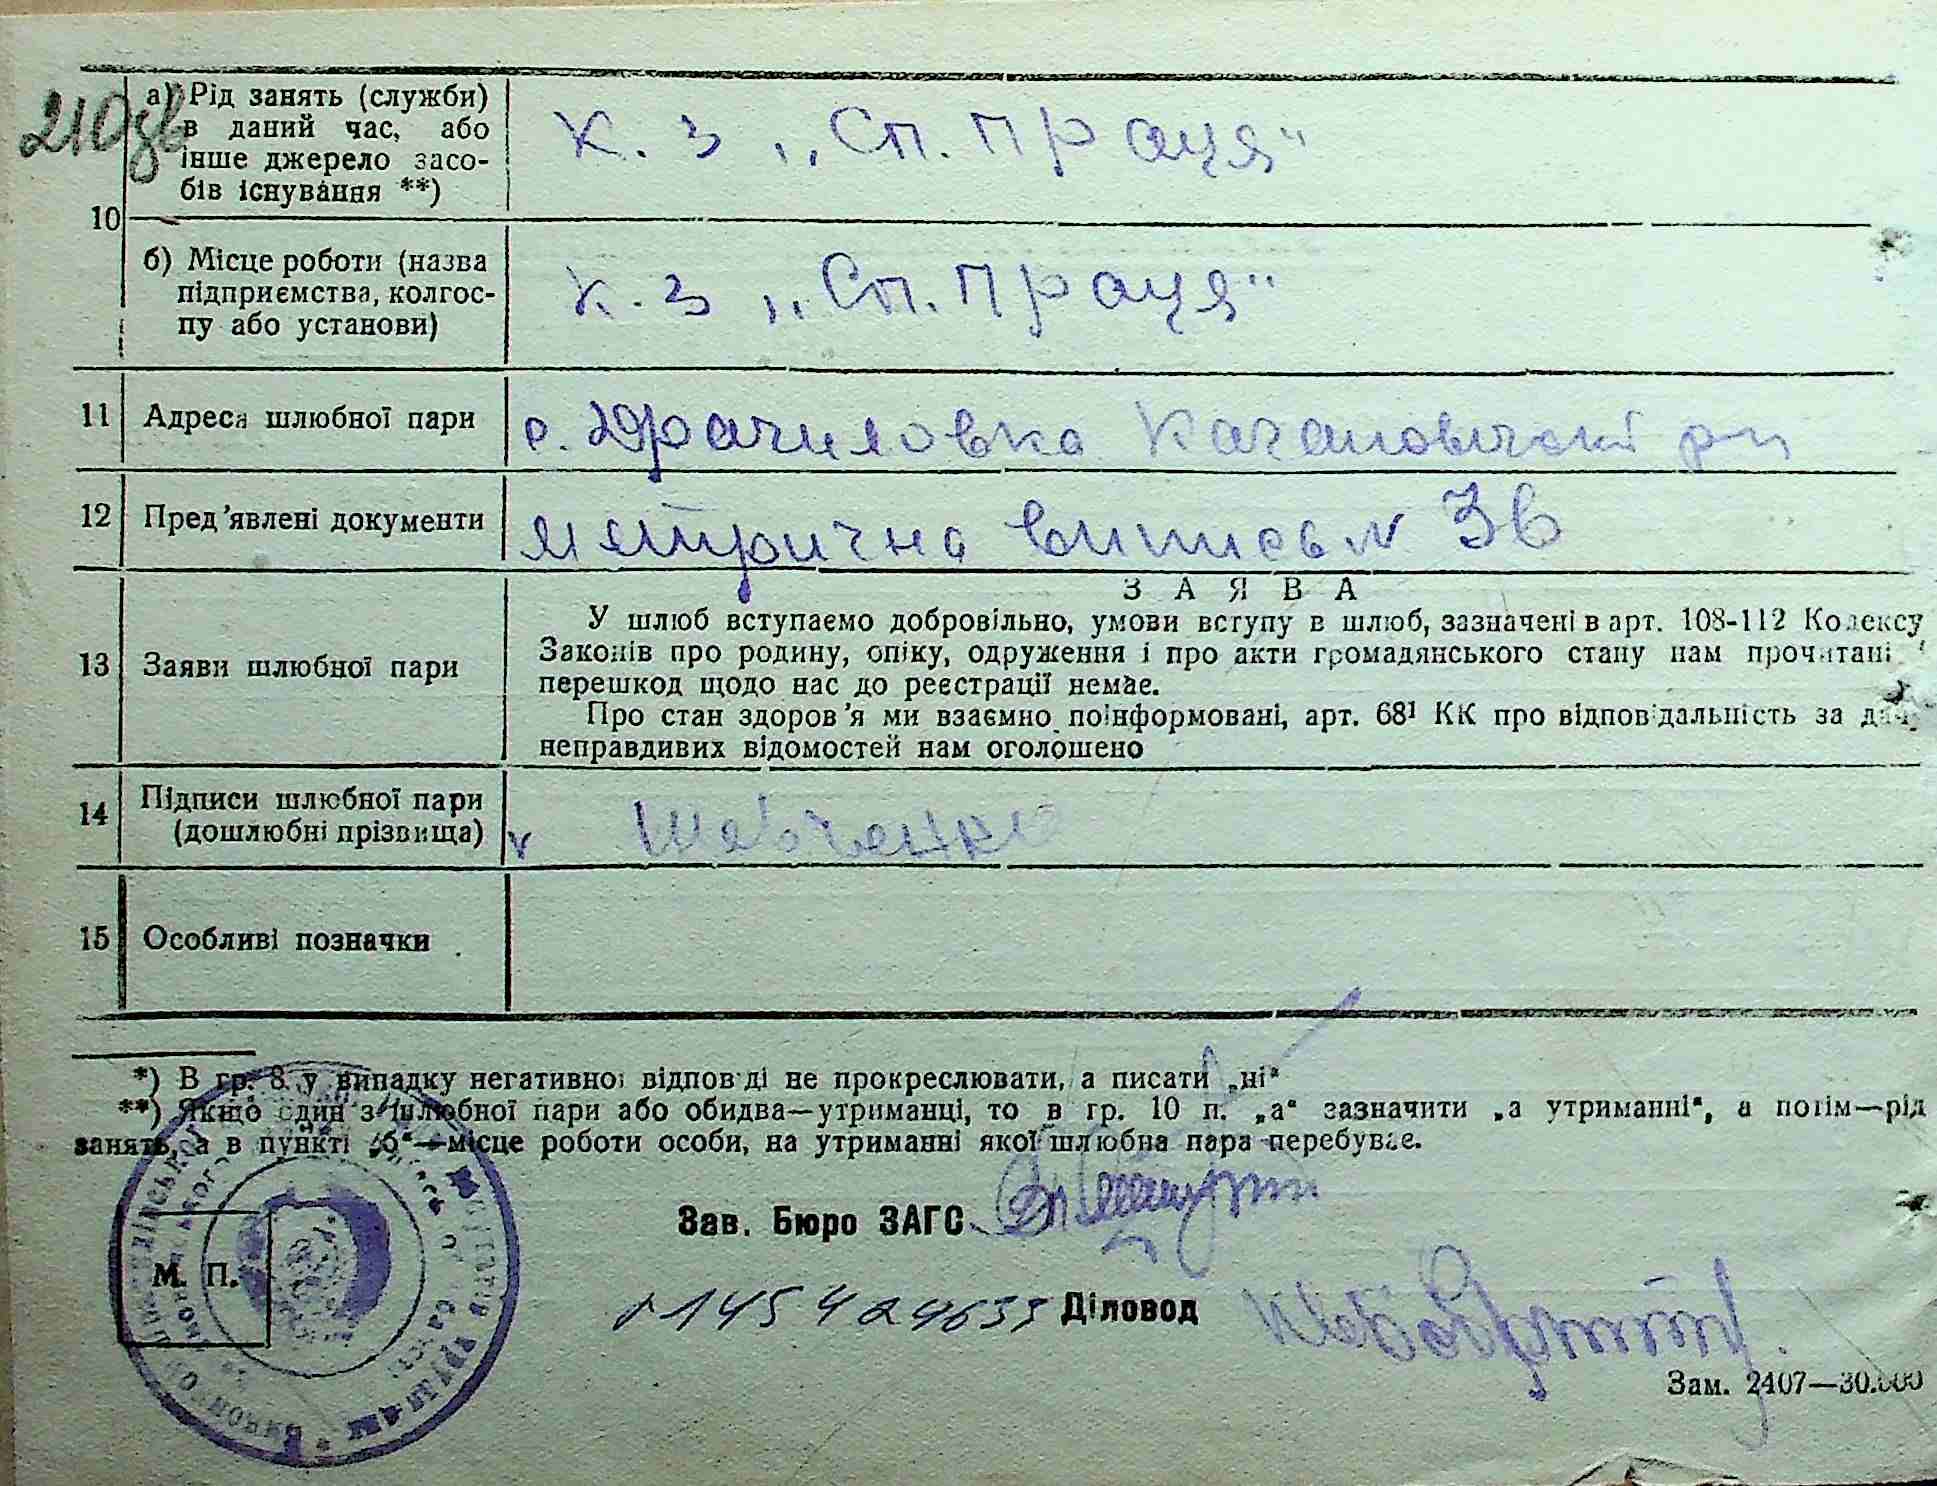 210зв
а) Рід занять (служби)
в даний час, або
інше джерело засо-
бів існування **)
К. З „Сп. Праця"
10
б) Місце роботи (назва
підприємства, колгос-
пу або установи)
К. З „Сп. Праця"
11 Адреса шлюбної пари с. Драчиловка
12 Пред'явлені документи метрична випись № 36
З А Я В А
У шлюб вступаємо добровільно, умови вступу в шлюб, зазначені в арт. 108-112 Кодексу
13 Заяви шлюбної пари Законів про родину, опіку, одруження і про акти громадянського стану нам прочитані
перешкод щодо нас до реєстрації немає.
Про стан здоров'я ми взаємно поінформовані, арт. 68¹ КК про відповідальність за
неправдивих відомостей нам оголошено
14 Підписи шлюбної пари
(дошлюбні прізвища)
Шевченко
15 Особливі позначки
*) В гр. 8 у випадку негативної відповіді не прокреслювати, а писати „ні"
**) Якщо один з шлюбної пари або обидва—утриманці, то в гр. 10 п. „а" зазначити „а утриманні", а потім—рід
занять, а в пункті „б"—місце роботи особи, на утриманні якої шлюбна пара перебуває.
Зав. Бюро ЗАГС
М. П.
Діловод
Зам. 2407—30.000